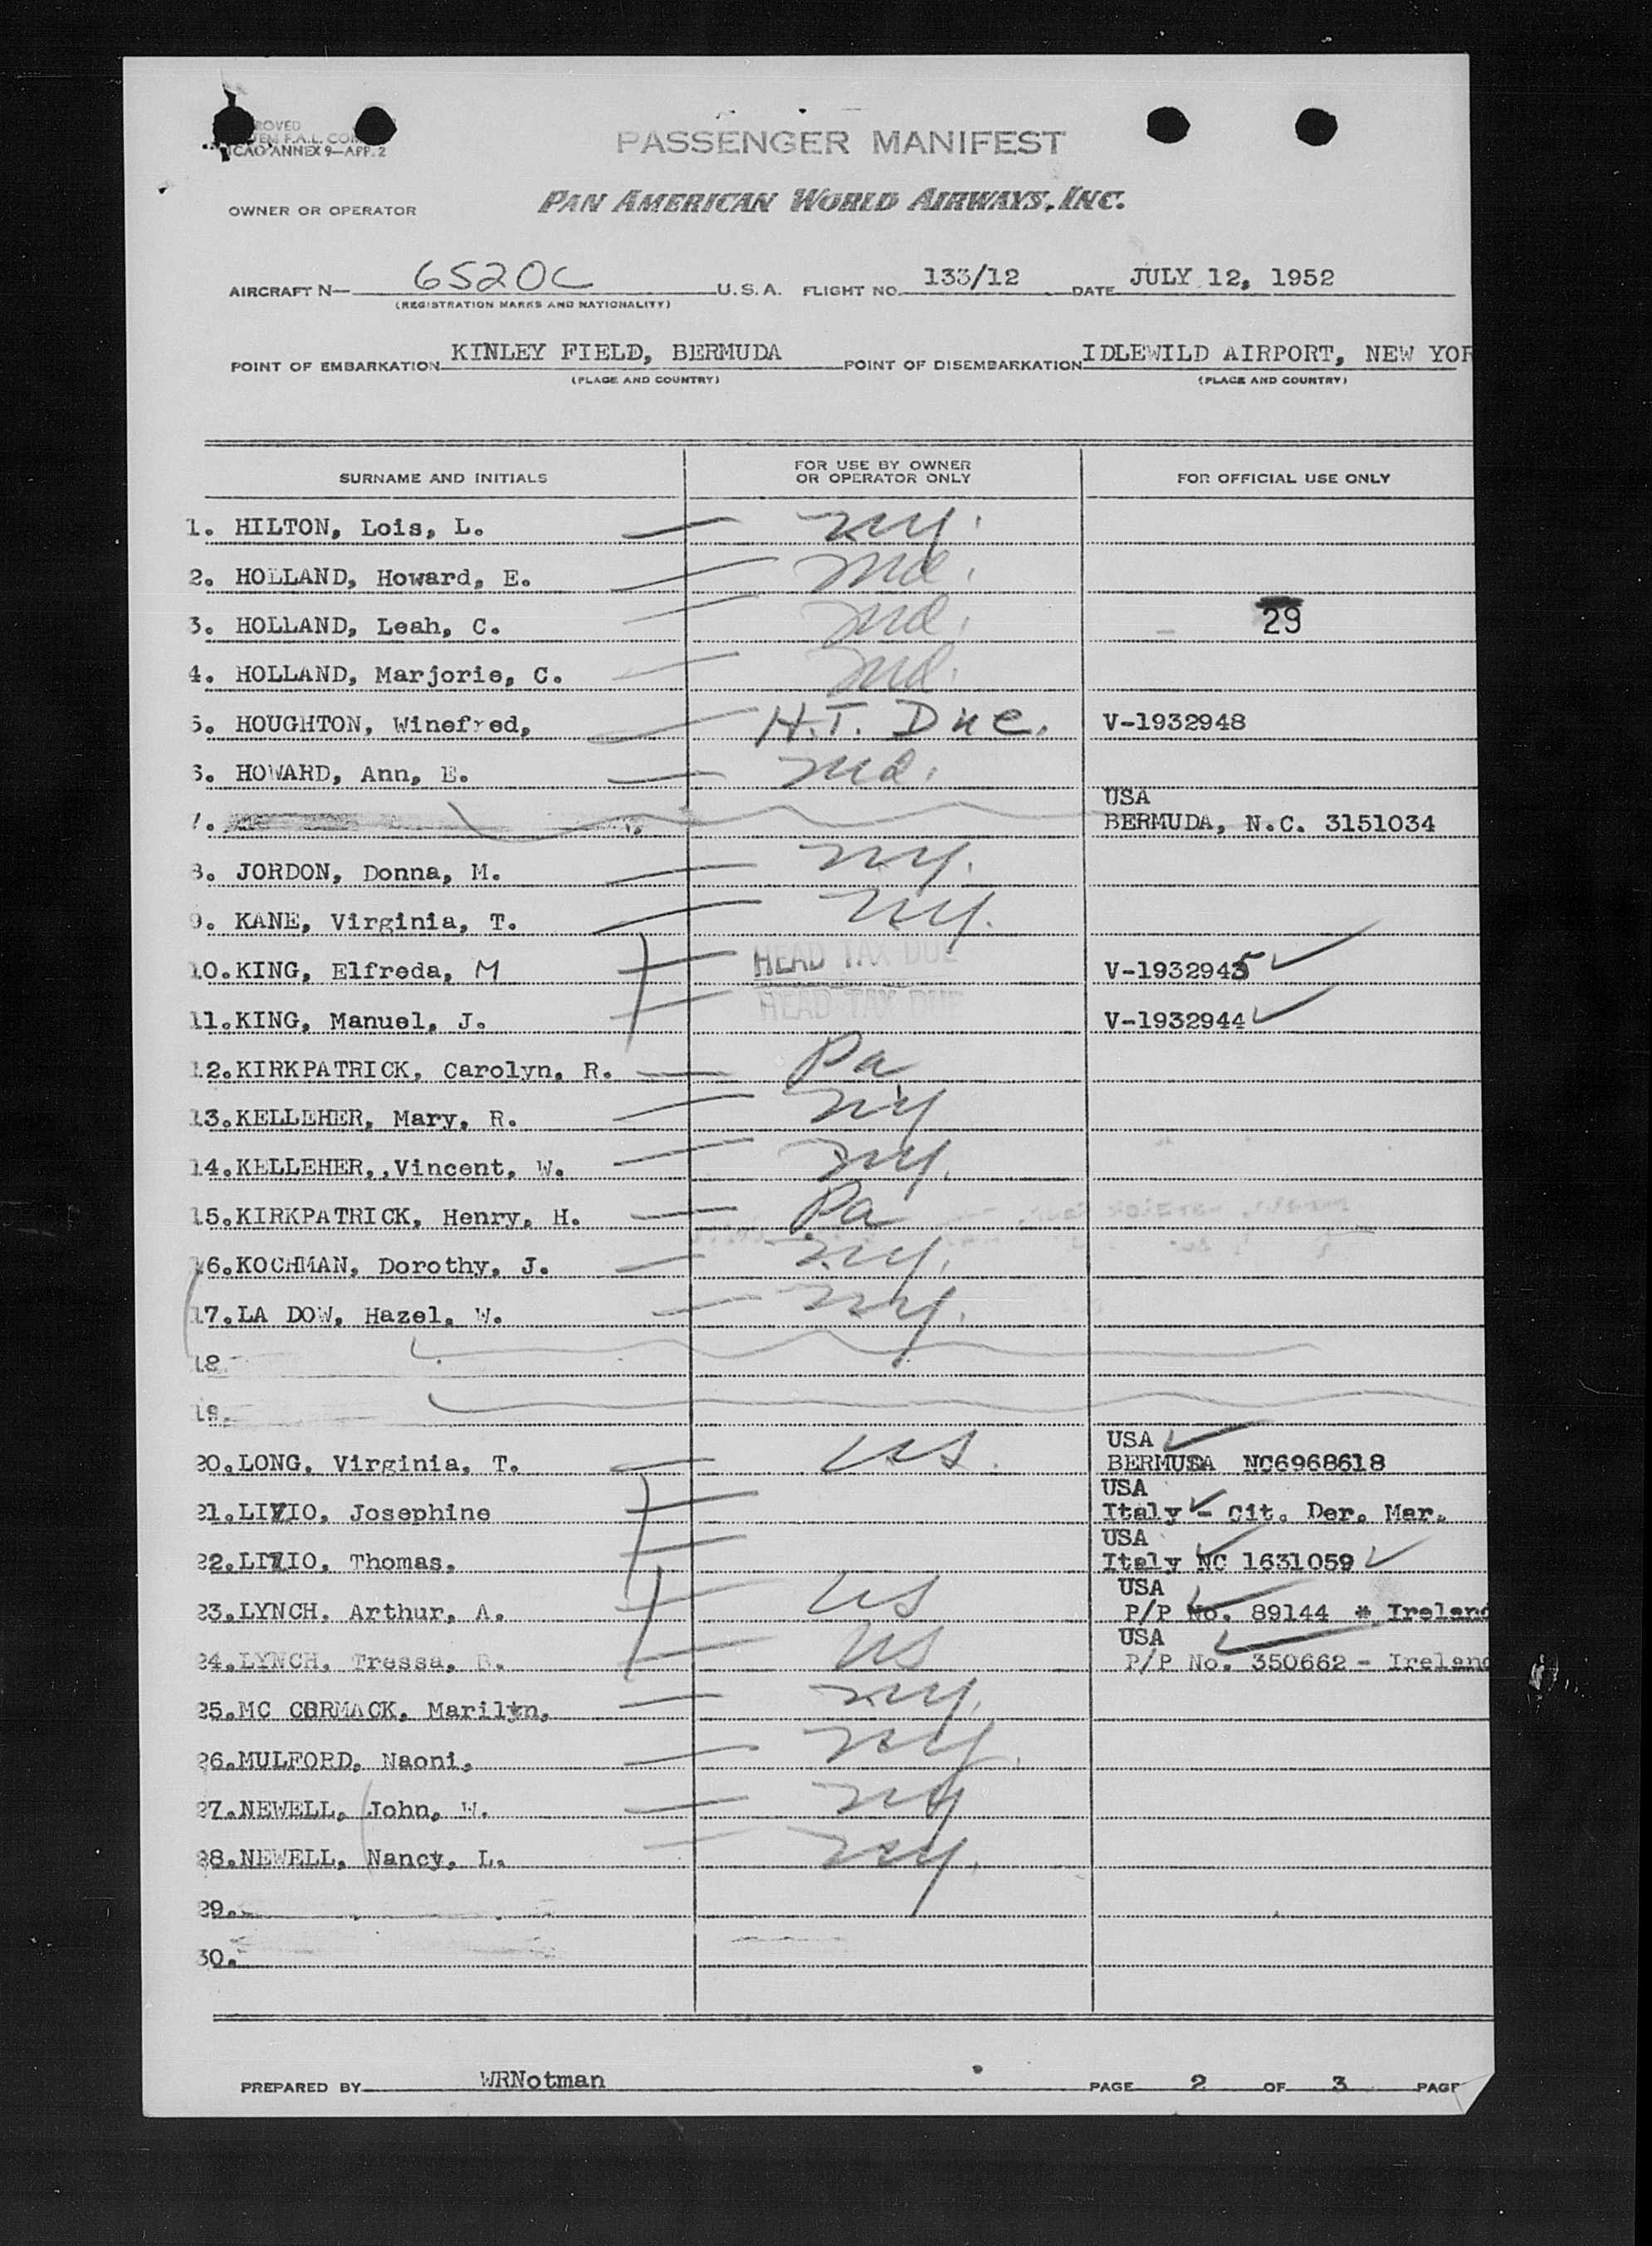 PROVED
F.A.L. COM
ICAO ANNEX 9—APP. 2
PASSENGER MANIFEST
OWNER OR OPERATOR PAN AMERICAN WORLD AIRWAYS, INC.
AIRCRAFT N— 6520C U.S.A. FLIGHT NO. 133/12 DATE JULY 12, 1952
(REGISTRATION MARKS AND NATIONALITY)
POINT OF EMBARKATION KINLEY FIELD, BERMUDA POINT OF DISEMBARKATION IDLEWILD AIRPORT, NEW YOR
(PLACE AND COUNTRY) (PLACE AND COUNTRY)
SURNAME AND INITIALS FOR USE BY OWNER OR OPERATOR ONLY FOR OFFICIAL USE ONLY
1. HILTON, Lois, L. — ny.
2. HOLLAND, Howard, E. — md.
3. HOLLAND, Leah, C. — md. 29
4. HOLLAND, Marjorie, C. — md.
5. HOUGHTON, Winefred, — H.T. Due. V-1932948
6. HOWARD, Ann, E. — md.
USA
7. BERMUDA, N.C. 3151034
8. JORDON, Donna, M. — ny.
9. KANE, Virginia, T. — ny.
10. KING, Elfreda, M — HEAD TAX DUE V-1932945 ✓
11. KING, Manuel, J. — HEAD TAX DUE V-1932944 ✓
12. KIRKPATRICK, Carolyn, R. — Pa
13. KELLEHER, Mary, R. — ny
14. KELLEHER,,Vincent, W. — ny.
15. KIRKPATRICK, Henry, H. — Pa
16. KOCHMAN, Dorothy, J. — ny.
17. LA DOW, Hazel, W. — ny.
18.
19.
USA ✓
20. LONG, Virginia, T. — US. BERMUDA NC6968618
USA
21. LIVIO, Josephine — Italy ✓ - Cit. Der. Mar.
USA
22. LIVIO, Thomas, — Italy NC 1631059 ✓
USA
23. LYNCH, Arthur, A. — US P/P No. 89144 * Ireland
USA
24. LYNCH, Tressa, B. — US P/P No. 350662 - Ireland
25. MC CORMACK, Marilyn, — ny.
26. MULFORD, Naoni, — ny.
27. NEWELL, John, W. — ny
28. NEWELL, Nancy, L. — ny.
29.
30.
PREPARED BY WRNotman PAGE 2 OF 3 PAGE